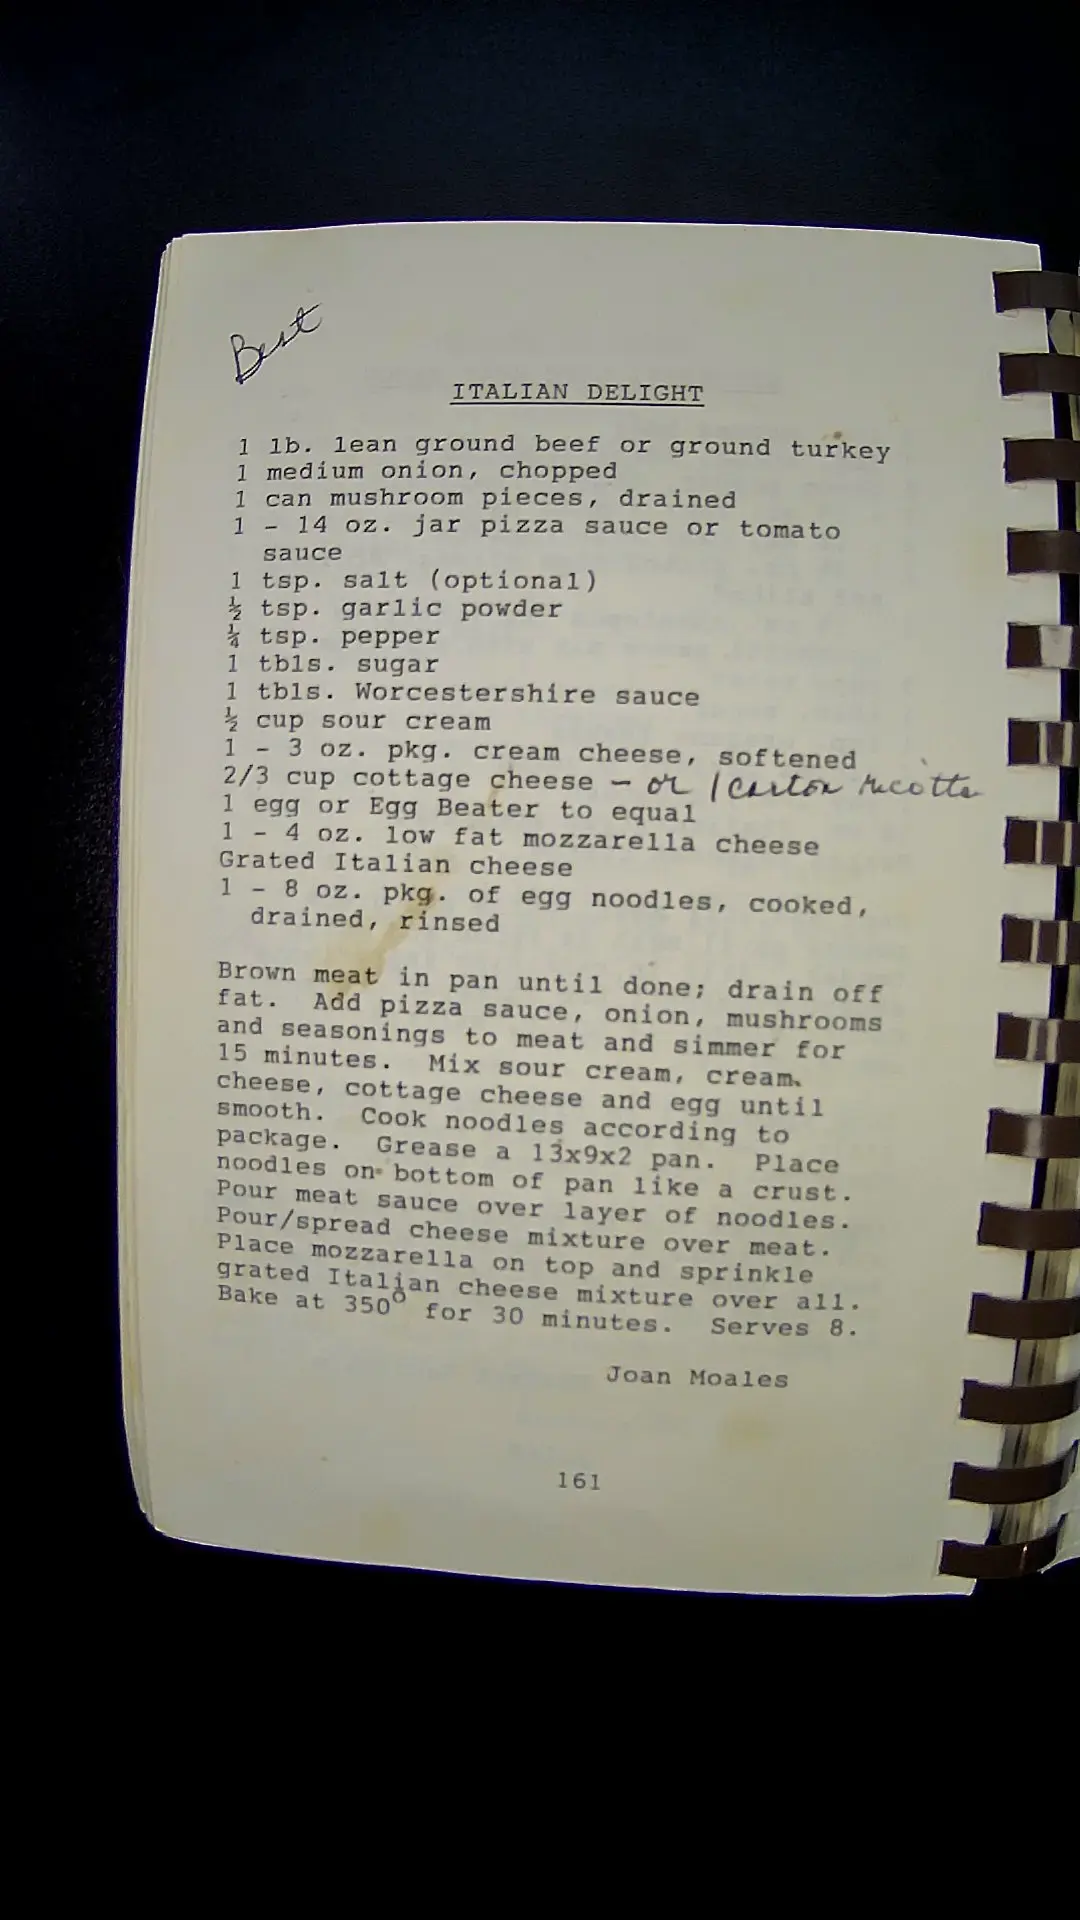 Best
ITALIAN DELIGHT
1 lb. lean ground beef or ground turkey
1 medium onion, chopped
1 can mushroom pieces, drained
1 - 14 oz. jar pizza sauce or tomato
sauce
1 tsp. salt (optional)
½ tsp. garlic powder
¼ tsp. pepper
1 tbls. sugar
1 tbls. Worcestershire sauce
½ cup sour cream
1 - 3 oz. pkg. cream cheese, softened
2/3 cup cottage cheese - or 1 carton ricotta
1 egg or Egg Beater to equal
1 - 4 oz. low fat mozzarella cheese
Grated Italian cheese
1 - 8 oz. pkg. of egg noodles, cooked,
drained, rinsed
Brown meat in pan until done; drain off
fat. Add pizza sauce, onion, mushrooms
and seasonings to meat and simmer for
15 minutes. Mix sour cream, cream
cheese, cottage cheese and egg until
smooth. Cook noodles according to
package. Grease a 13x9x2 pan. Place
noodles on bottom of pan like a crust.
Pour meat sauce over layer of noodles.
Pour/spread cheese mixture over meat.
Place mozzarella on top and sprinkle
grated Italian cheese mixture over all.
Bake at 350° for 30 minutes. Serves 8.
Joan Moales
161